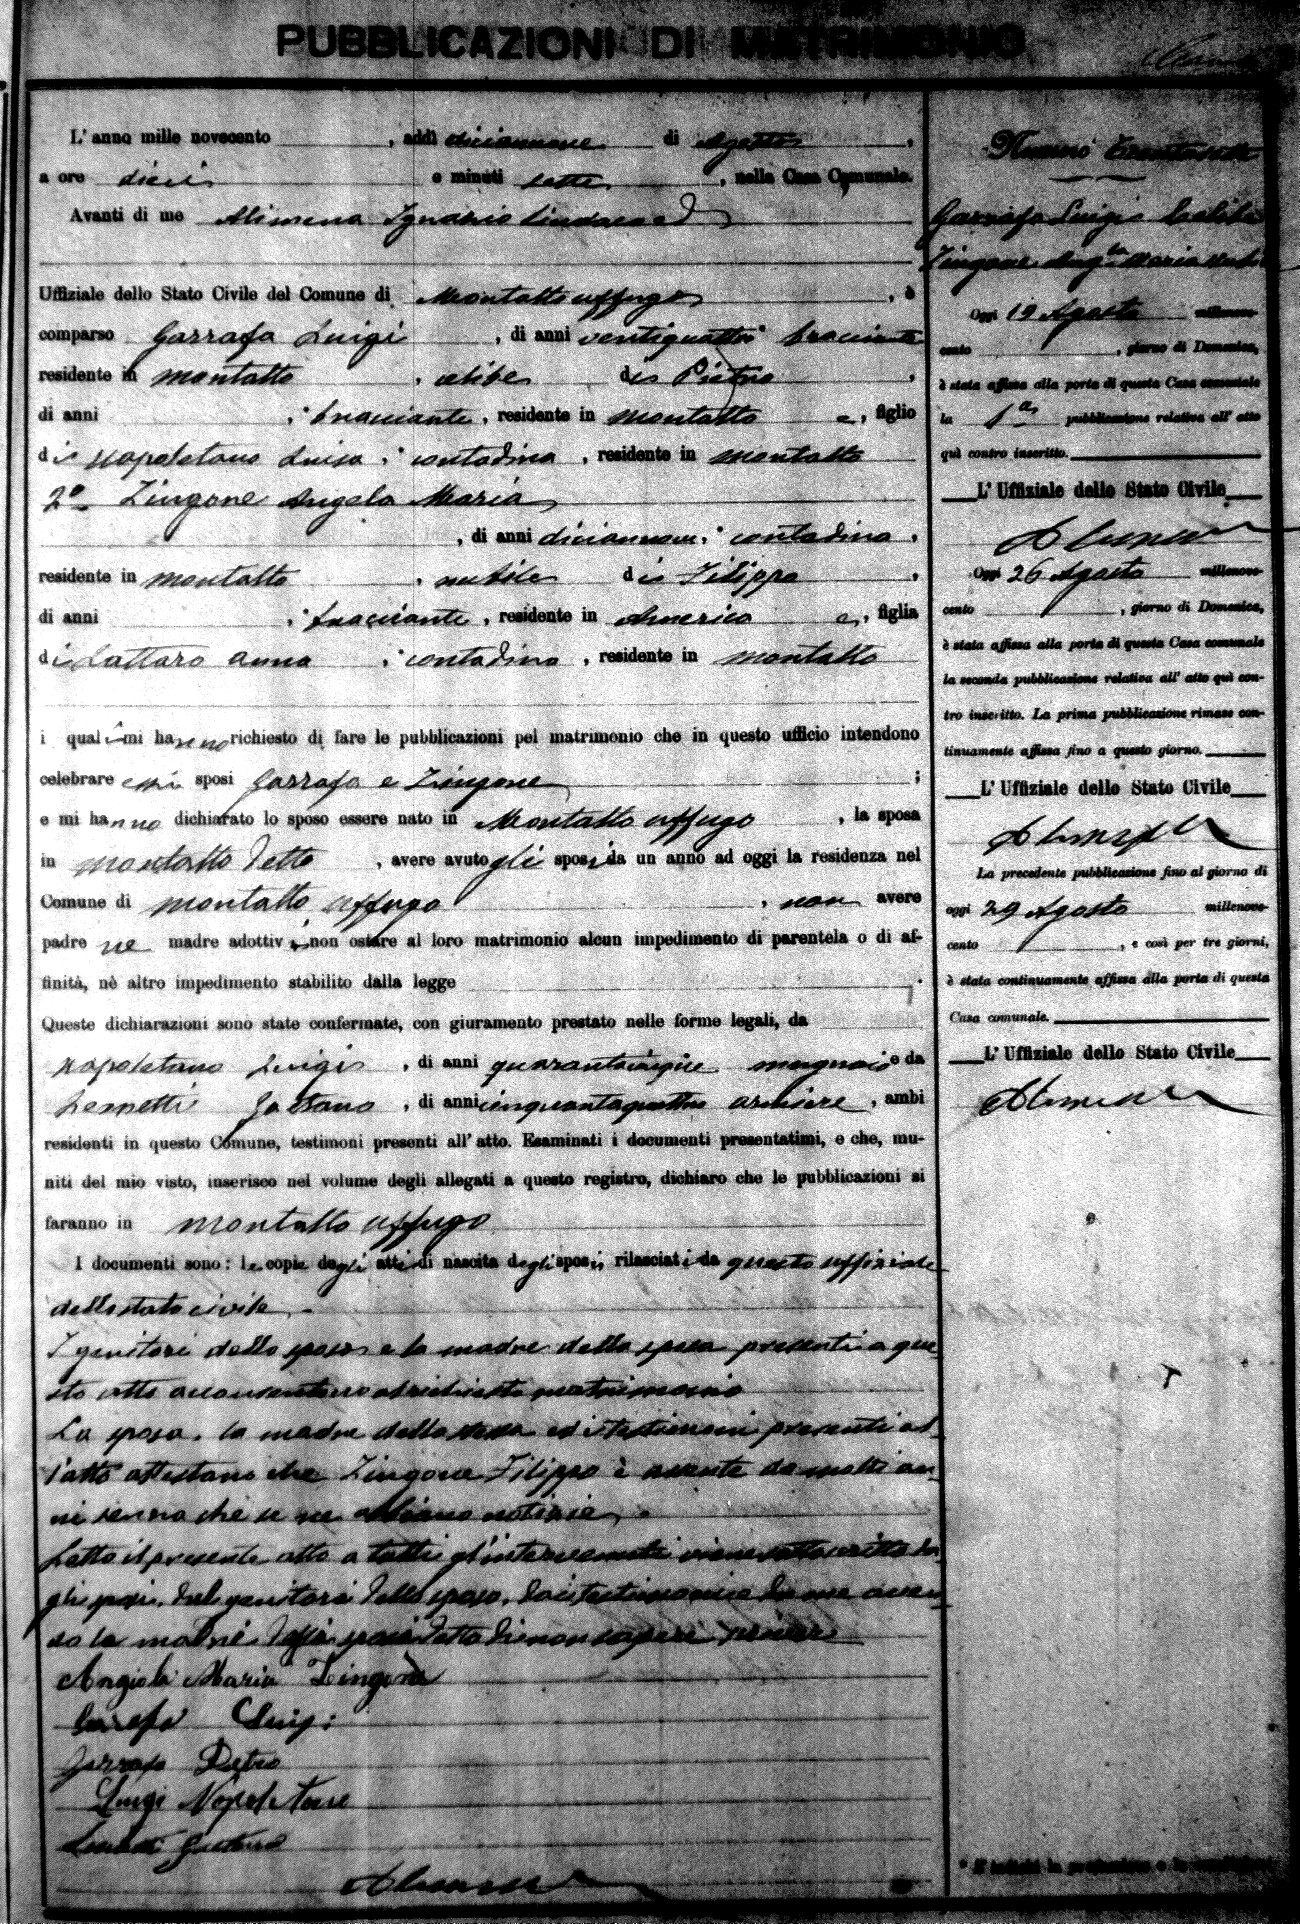 PUBBLICAZIONI DI MATRIMONIO
L' anno mille novecento , addì diciannove di Agosto ,
a ore dieci e minuti sette , nella Casa Comunale.
Avanti di me Alimena Ignazio Sindaco
Uffiziale dello Stato Civile del Comune di Montalto uffugo , è
comparso Garrafa Luigi , di anni ventiquattro bracciante
residente in Montalto , celibe di Pietro ,
di anni , bracciante , residente in Montalto e , figlio
di Napoletano Luisa , contadina , residente in Montalto
2º Zingone Angela Maria
, di anni diciannove , contadina ,
residente in Montalto , nubile di Filippo ,
di anni , bracciante , residente in America e , figlia
di Lattaro Anna , contadina , residente in Montalto
i quali mi hanno richiesto di fare le pubblicazioni pel matrimonio che in questo ufficio intendono
celebrare essi sposi Garrafa e Zingone ;
e mi hanno dichiarato lo sposo essere nato in Montalto uffugo , la sposa
in Montalto detto , avere avuto gli sposi da un anno ad oggi la residenza nel
Comune di Montalto uffugo , non avere
padre ne madre adottivi, non ostare al loro matrimonio alcun impedimento di parentela o di af-
finità, nè altro impedimento stabilito dalla legge .
Queste dichiarazioni sono state confermate, con giuramento prestato nelle forme legali, da
Napoletano Luigi , di anni quarantacinque mugnaio e da
Gaetano , di anni cinquantaquattro armiere , ambi
residenti in questo Comune, testimoni presenti all' atto. Esaminati i documenti presentatimi, e che, mu-
niti del mio visto, inserisco nel volume degli allegati a questo registro, dichiaro che le pubblicazioni si
faranno in Montalto uffugo
I documenti sono : le copie degli atti di nascita degli sposi, rilasciati da questo uffiziale
dello stato civile .
I genitori dello sposo e la madre della sposa presenti a que-
sto atto acconsentono al richiesto matrimonio
La sposa, la madre della stessa ed i testimoni presenti al-
l'atto attestano che Zingone Filippo è assente da molti an-
ni senza che se ne abbiano notizie .
Letto il presente atto a tutti gl'intervenuti viene sottoscritto da-
gli sposi, dal genitore dello sposo, dai testimoni e da me aven-
do le madri degli sposi detto di non sapere scrivere
Angiola Maria Zingone
Garrafa Luigi
Garrafa Pietro
Luigi Napoletano
Gaetano
Alimena
Numero Trentasette
Garrafa Luigi celibe
Zingone Ang.la Maria nubile
Oggi 19 Agosto millenove-
cento , giorno di Domenica,
è stata affissa alla porta di questa Casa comunale
la 1a pubblicazione relativa all' atto
quì contro inscritto.
L' Uffiziale dello Stato Civile
Alimena
Oggi 26 Agosto millenove-
cento , giorno di Domenica,
è stata affissa alla porta di questa Casa comunale
la seconda pubblicazione relativa all' atto quì con-
tro inscritto. La prima pubblicazione rimase con-
tinuamente affissa fino a questo giorno.
L' Uffiziale dello Stato Civile
Alimena
La precedente pubblicazione fino al giorno di
oggi 29 Agosto millenove-
cento , e così per tre giorni,
è stata continuamente affissa alla porta di questa
Casa comunale.
L' Uffiziale dello Stato Civile
Alimena